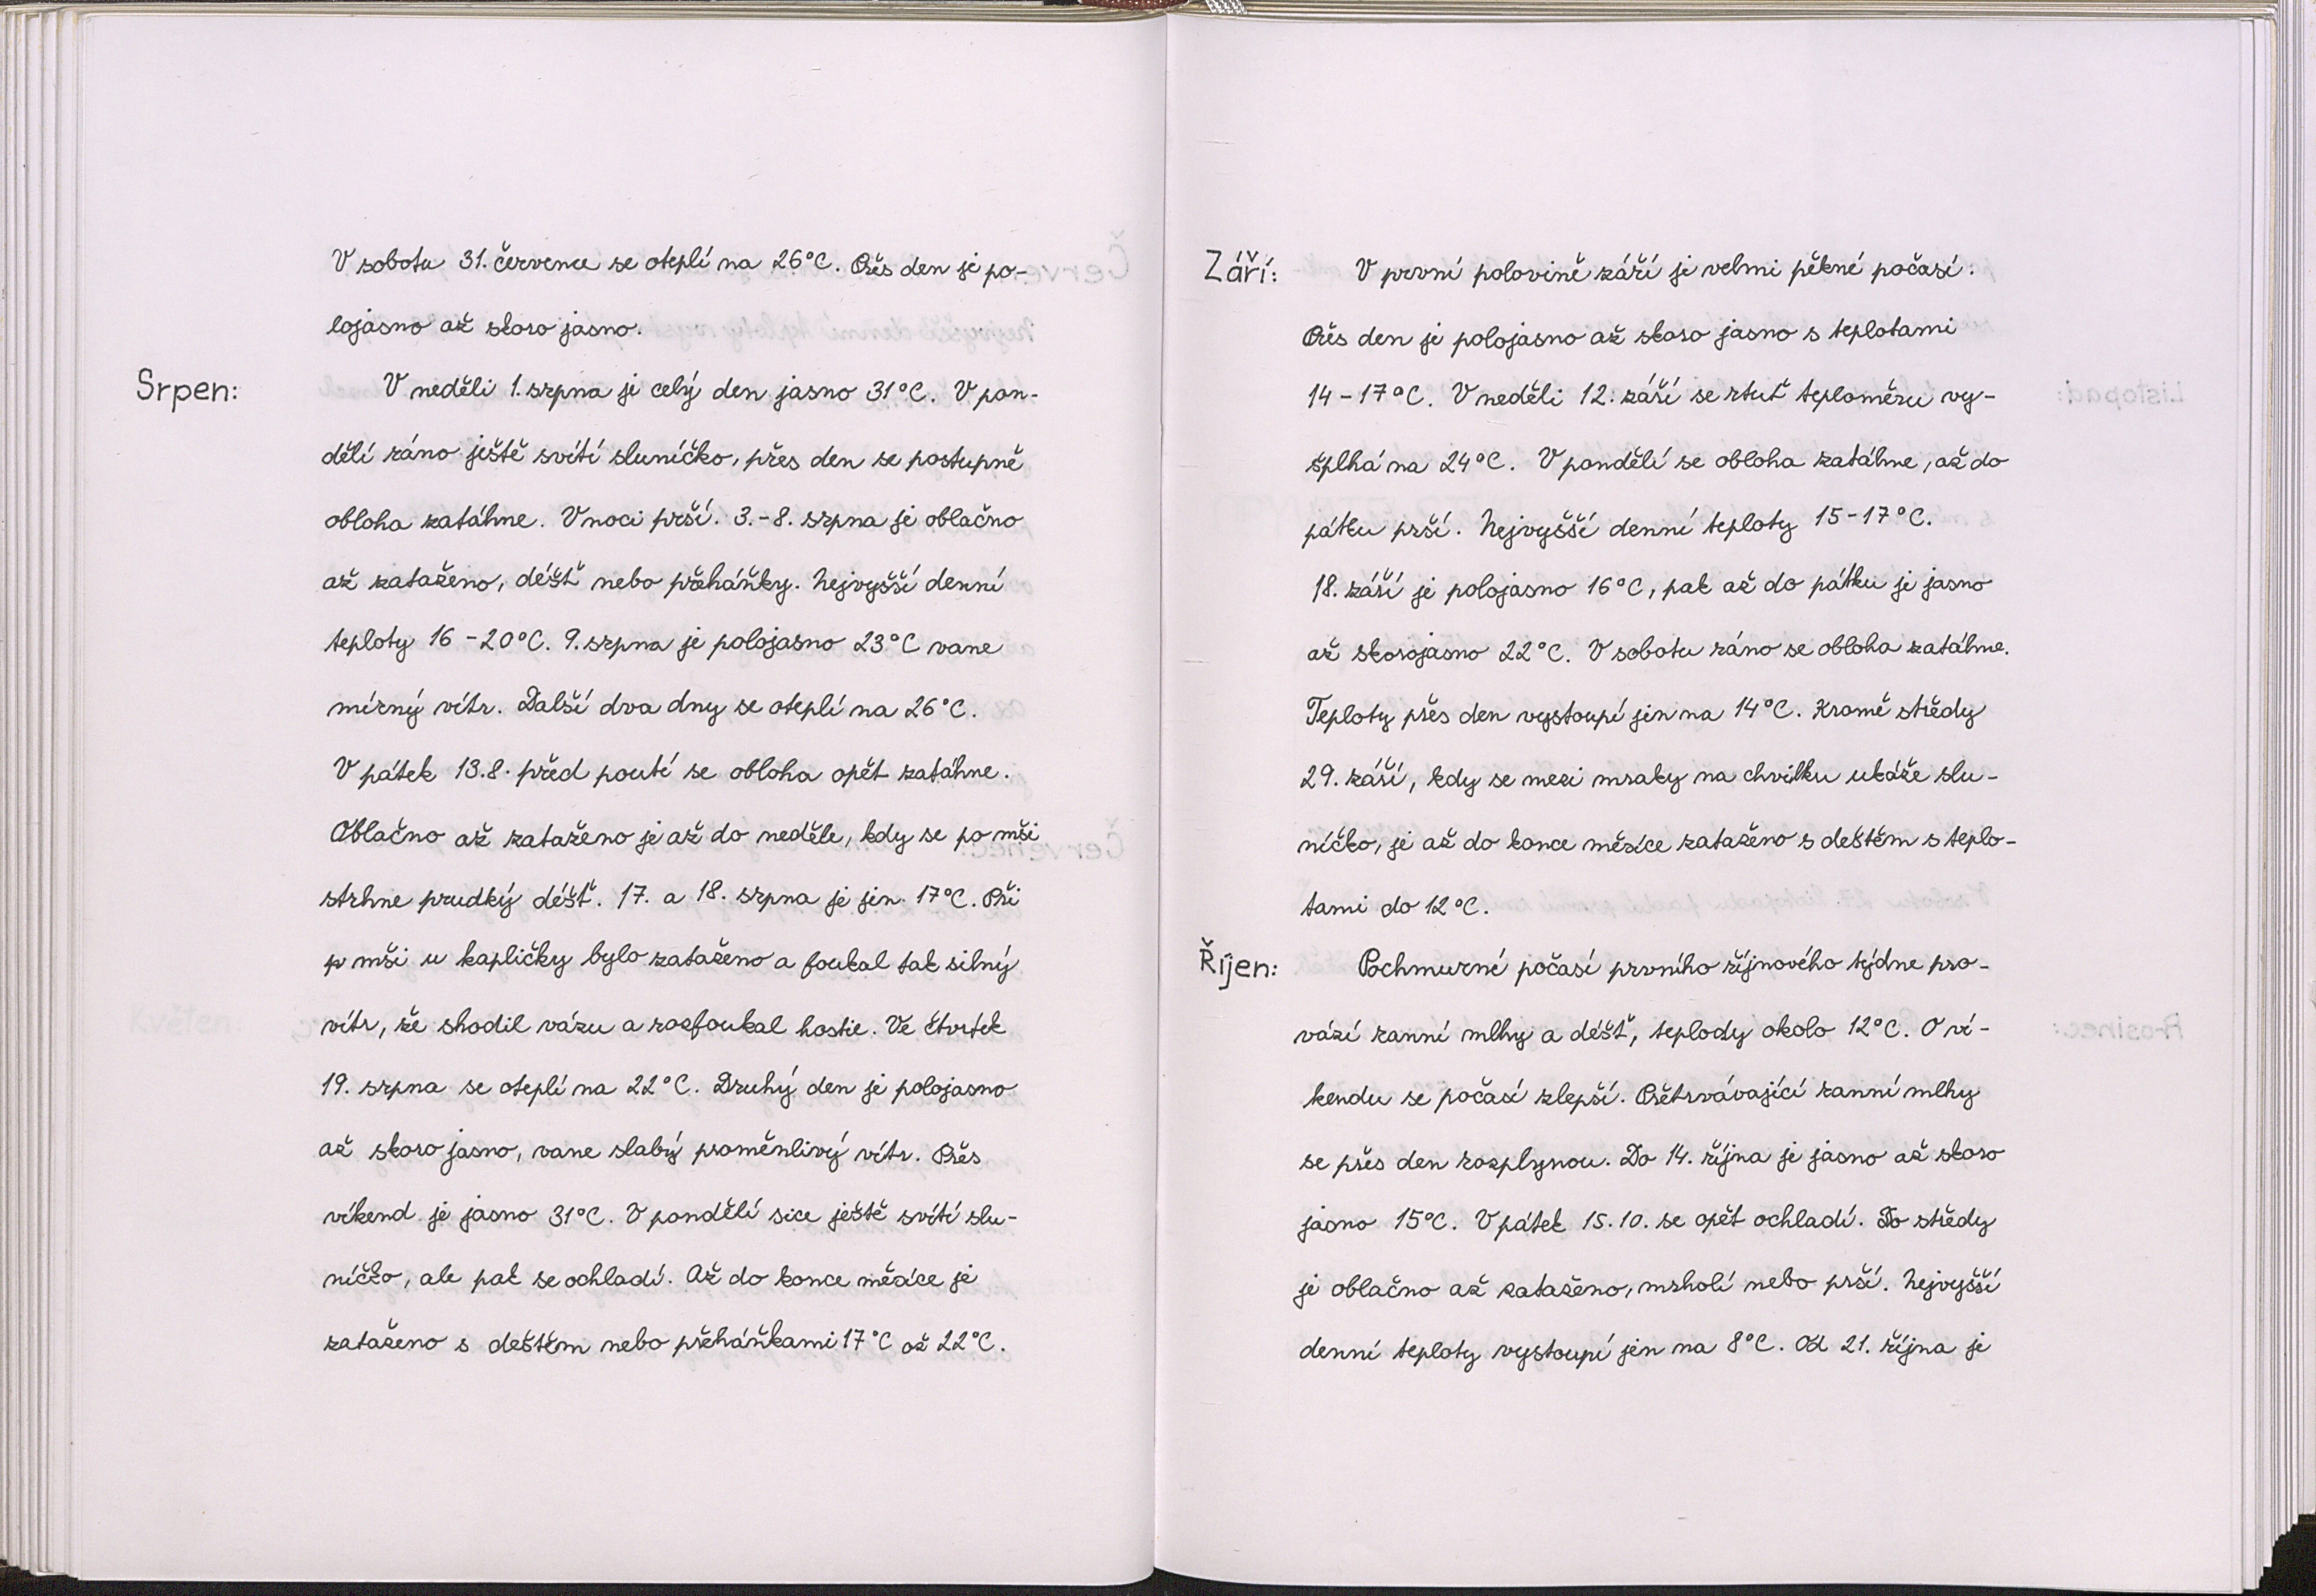 V sobotu 31. července se oteplí na 26°C. Přes den je po-
lojasno až skoro jasno.
Srpen: V neděli 1. srpna je celý den jasno 31°C. V pon-
dělí ráno ještě svítí sluníčko, přes den se postupně
obloha zatáhne. V noci prší. 3.-8. srpna je oblačno
až zataženo, déšť nebo přeháňky. Nejvyšší denní
teploty 16-20°C. 9. srpna je polojasno 23°C vane
mírný vítr. Další dva dny se oteplí na 26°C.
V pátek 13.8. před poutí se obloha opět zatáhne.
Oblačno až zataženo je až do neděle, kdy se po mši
strhne prudký déšť. 17. a 18. srpna je jen 17°C. Při
p mši u kapličky bylo zataženo a foukal tak silný
vítr, že shodil vázu a rozfoukal hostie. Ve čtvrtek
19. srpna se oteplí na 22°C. Druhý den je polojasno
až skoro jasno, vane slabý proměnlivý vítr. Přes
víkend je jasno 31°C. V pondělí sice ještě svítí slu-
níčko, ale pak se ochladí. Až do konce měsíce je
zataženo s deštěm nebo přeháňkami 17°C až 22°C.
Září: V první polovině září je velmi pěkné počasí.
Přes den je polojasno až skoro jasno s teplotami
14-17°C. V neděli 12. září se rtuť teploměru vy-
šplhá na 24°C. V pondělí se obloha zatáhne, až do
pátku prší. Nejvyšší denní teploty 15-17°C.
18. září je polojasno 16°C, pak až do pátku je jasno
až skorojasno 22°C. V sobotu ráno se obloha zatáhne.
Teploty přes den vystoupí jen na 14°C. Kromě středy
29. září, kdy se mezi mraky na chvilku ukáže slu-
níčko, je až do konce měsíce zataženo s deštěm s teplo-
tami do 12°C.
Říjen: Pochmurné počasí prvního říjnového týdne pro-
vází ranní mlhy a déšť, teplody okolo 12°C. O ví-
kendu se počasí zlepší. Přetrvávající ranní mlhy
se přes den rozplynou. Do 14. října je jasno až skoro
jasno 15°C. V pátek 15.10. se opět ochladí. Do středy
je oblačno až zataženo, mrholí nebo prší. Nejvyšší
denní teploty vystoupí jen na 8°C. Od 21. října je